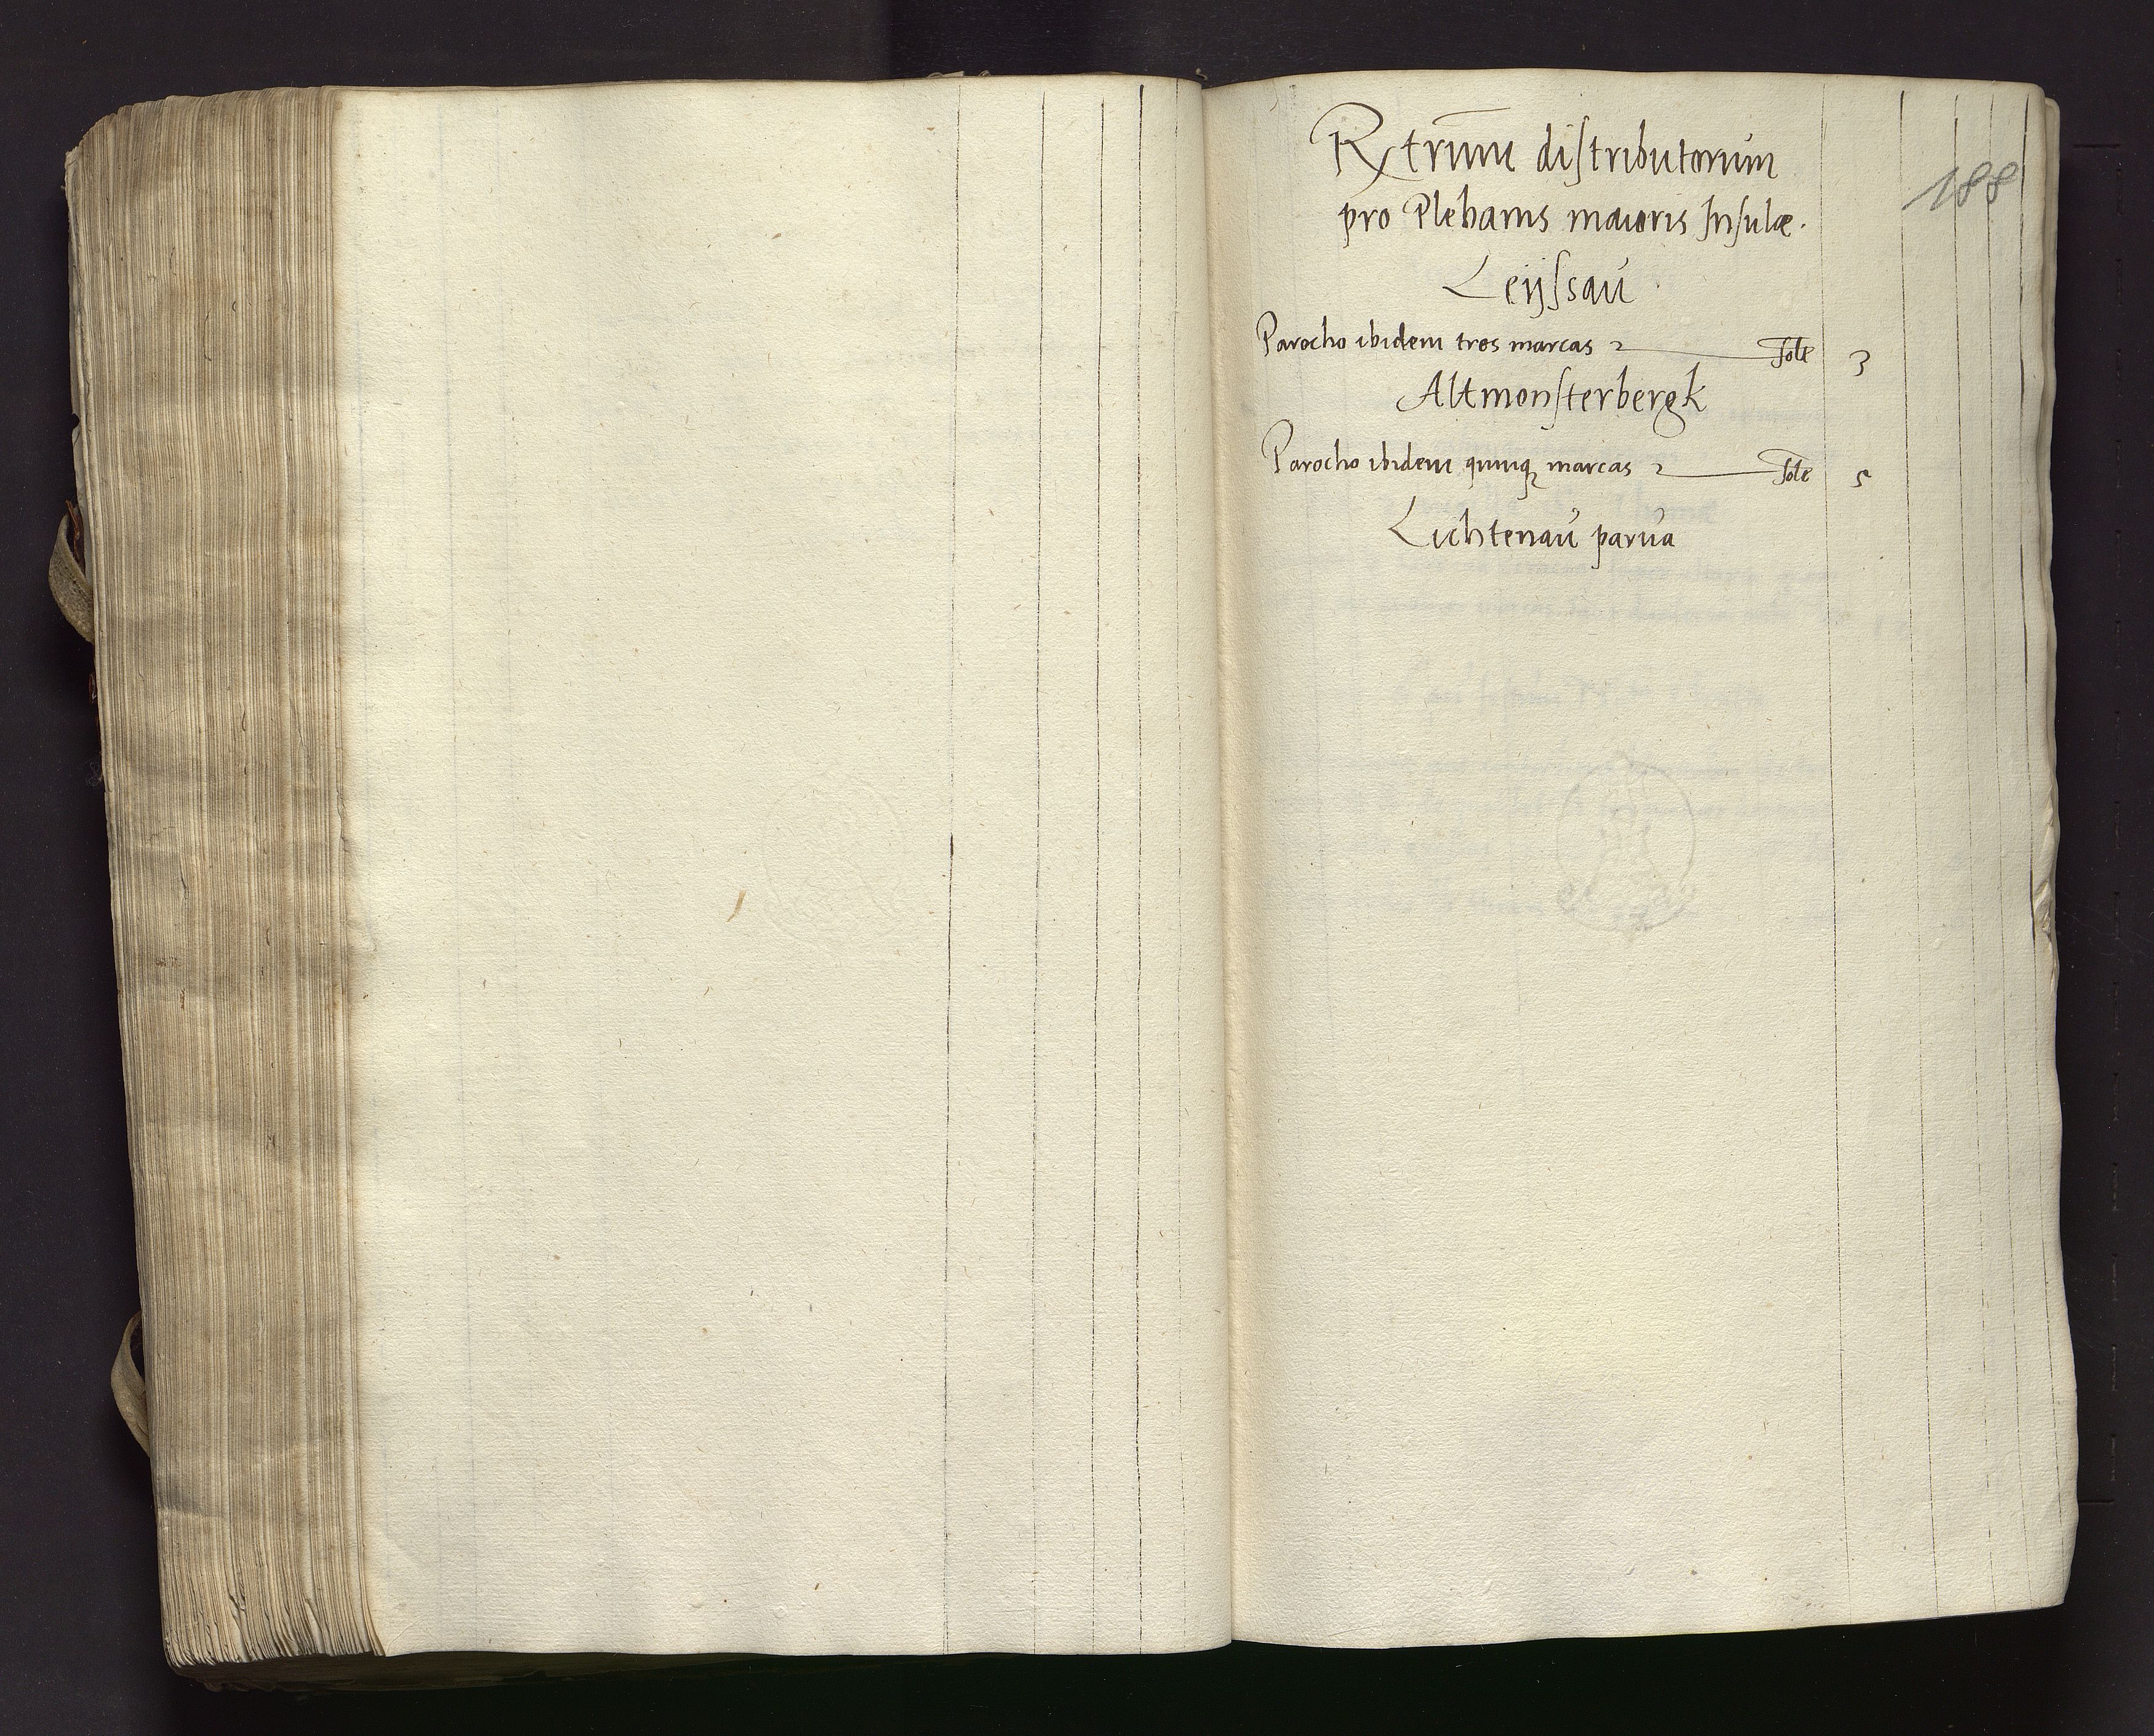 Rxtrum̄ distributorum
pro Plebanis maioris Insulæ.
188
Leÿssau
Parocho ibidem tres marcas
3
Altmonsterbergk
Parocho ibidem quinq̃ marcas
5
Lichtenau parua